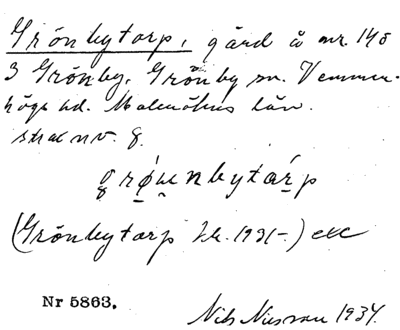 Grönbytorp, gård å nr. 14 o
3 Grönby, Grönby sn. Vemmen-
högs hd. Malmöhus län.
strax nv. g.
grøu̯nbytar̠p
(Grönbytorp Jb. 1931-) etc
Nr 5863.
Nils Nilsson 1934.